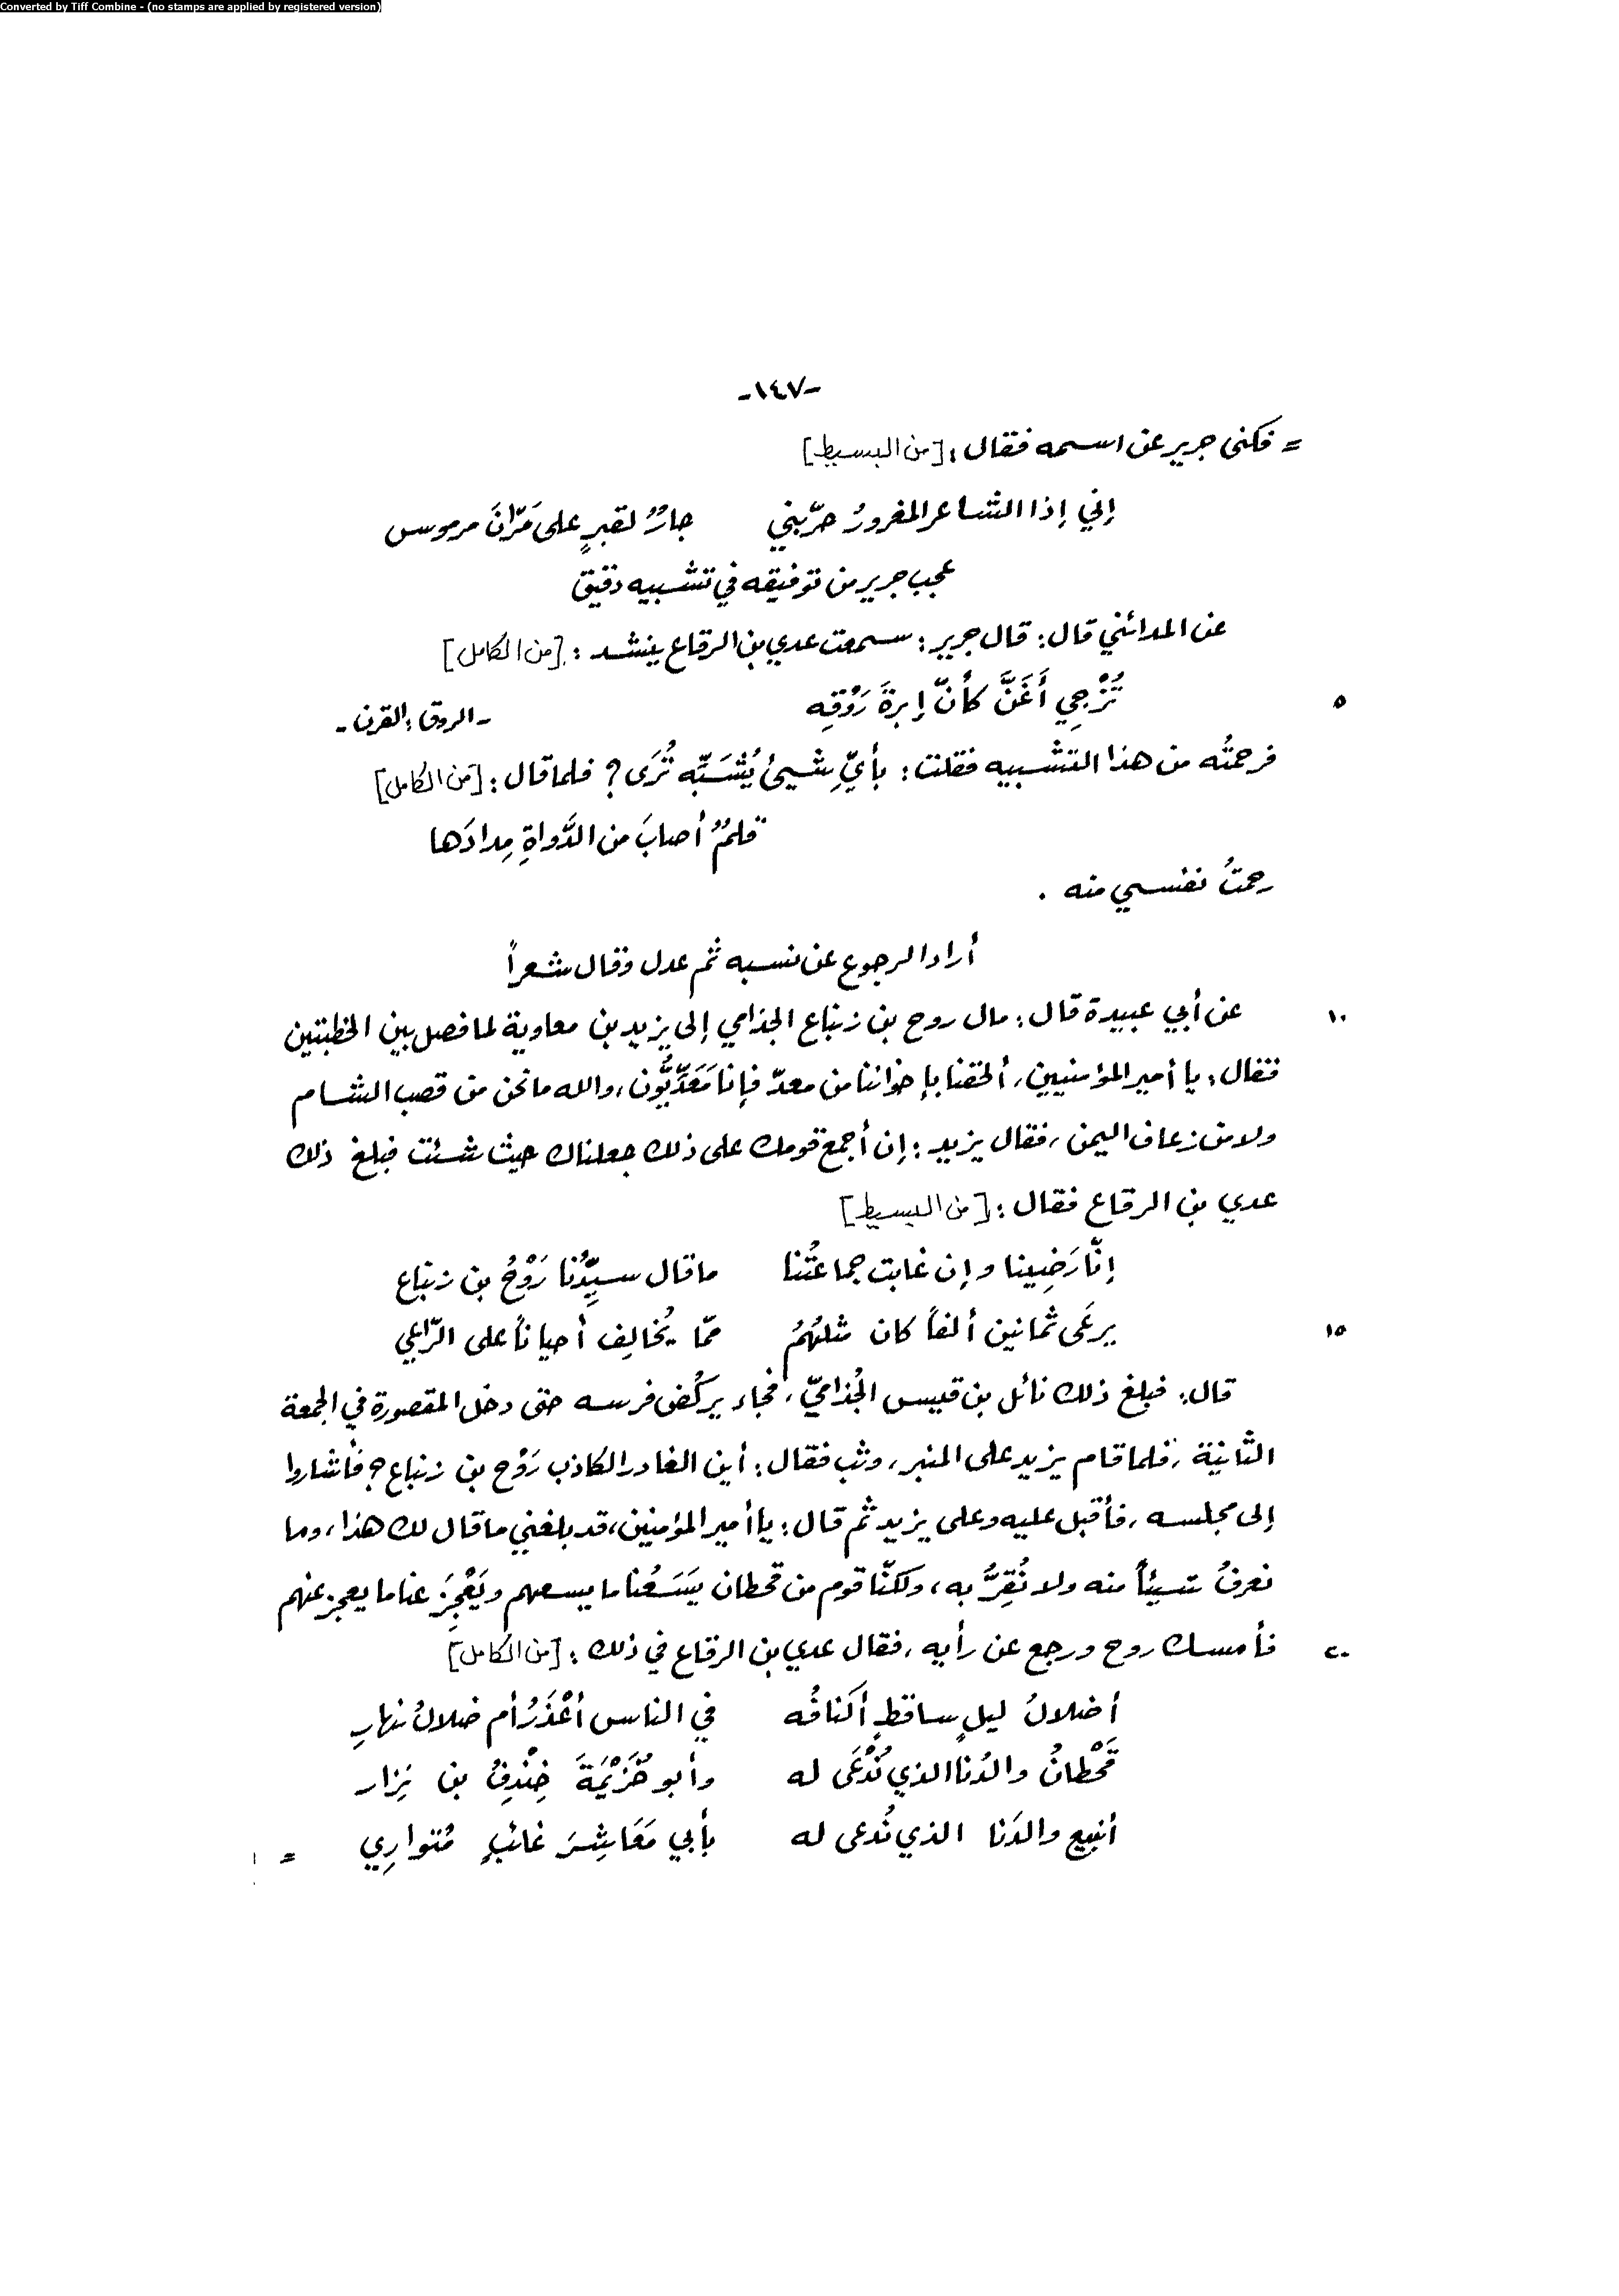 Converted by Tiff Combine - (no stamps are applied by registered version)
-١٤٧-
= فكنى جرير عن اسمه فقال : [من البسيط]
إني إذا الشاعر المغرورُ حرّبني جارٌ لقبرٍ على مَرّانَ مرموس
عجب جرير من توفيقه في تشبيه دقيق
عن المدائني قال : قال جرير : سمعت عدي بن الرقاع ينشد : [من الكامل]
٥ تُزْجِي أَغَنَّ كأنّ إبرةَ رَوْقِه - الروق : القرن -
فرحمتُه من هذا التشبيه فقلت : بأيِّ شيئٍ يُشَبِّه تُرَى ? فلما قال : [من الكامل]
قلمٌ أصابَ من الدَّواةِ مِدادَها
رحمتُ نفسي منه .
أراد الرجوع عن نسبه ثم عدل وقال شعراً
١٠ عن أبي عبيدة قال : مال روح بن زنباع الجذامي إلى يزيد بن معاوية لما فصل بين الخطبتين
فقال : يا أمير المؤمنيين ، ألحقنا بإخواننا من معدّ فإنا مَعَدِّيُّون ، والله ما نحن من قصب الشام
ولا من زعاف اليمن ، فقال يزيد : إن أجمع قومك على ذلك جعلناك حيث شئت فبلغ ذلك
عدي بن الرقاع فقال : [من البسيط]
إنّا رَضِينا وإن غابت جماعتُنا ما قال سيِّدُنا رَوْحُ بن زنباع
١٥ يرعَى ثمانين ألفاً كان مثلهُمُ ممّا يُخالِف أحياناً على الرّاعي
قال : فبلغ ذلك نائل بن قيس الجُذاميّ ، فجاء يركُض فرسه حتى دخل المقصورة في الجمعة
الثّانية ، فلما قام يزيد على المنبر ، وثب فقال : أين الغادر الكاذب رَوْح بن زنباع ؟ فأشاروا
إلى مجلسه ، فأقبل عليه وعلى يزيد ثم قال : يا أمير المؤمنين ، قد بلغني ما قال لك هذا ، وما
نعرفُ شيئاً منه ولا نُقِرُّ به ، ولكنّا قوم من قحطان يَسَعُنا ما يسعهم ويَعْجِزَ عنا ما يعجز عنهم
٢٠ فأمسك روح ورجع عن رأيه ، فقال عدي بن الرقاع في ذلك : [من الكامل]
أضلالُ ليلٍ ساقطٍ أكنافُه في الناس أعْذَرُ أم ضلالُ نهارِ
قَحْطانُ والدُنا الذي نُدْعَى له وأبو خُزَيْمَةَ خِنْدِفُ بن نِزار
أنبيع والدَنا الذي نُدعى له بأبي مَعَاشِرَ غائبٍ مُتوارِي =